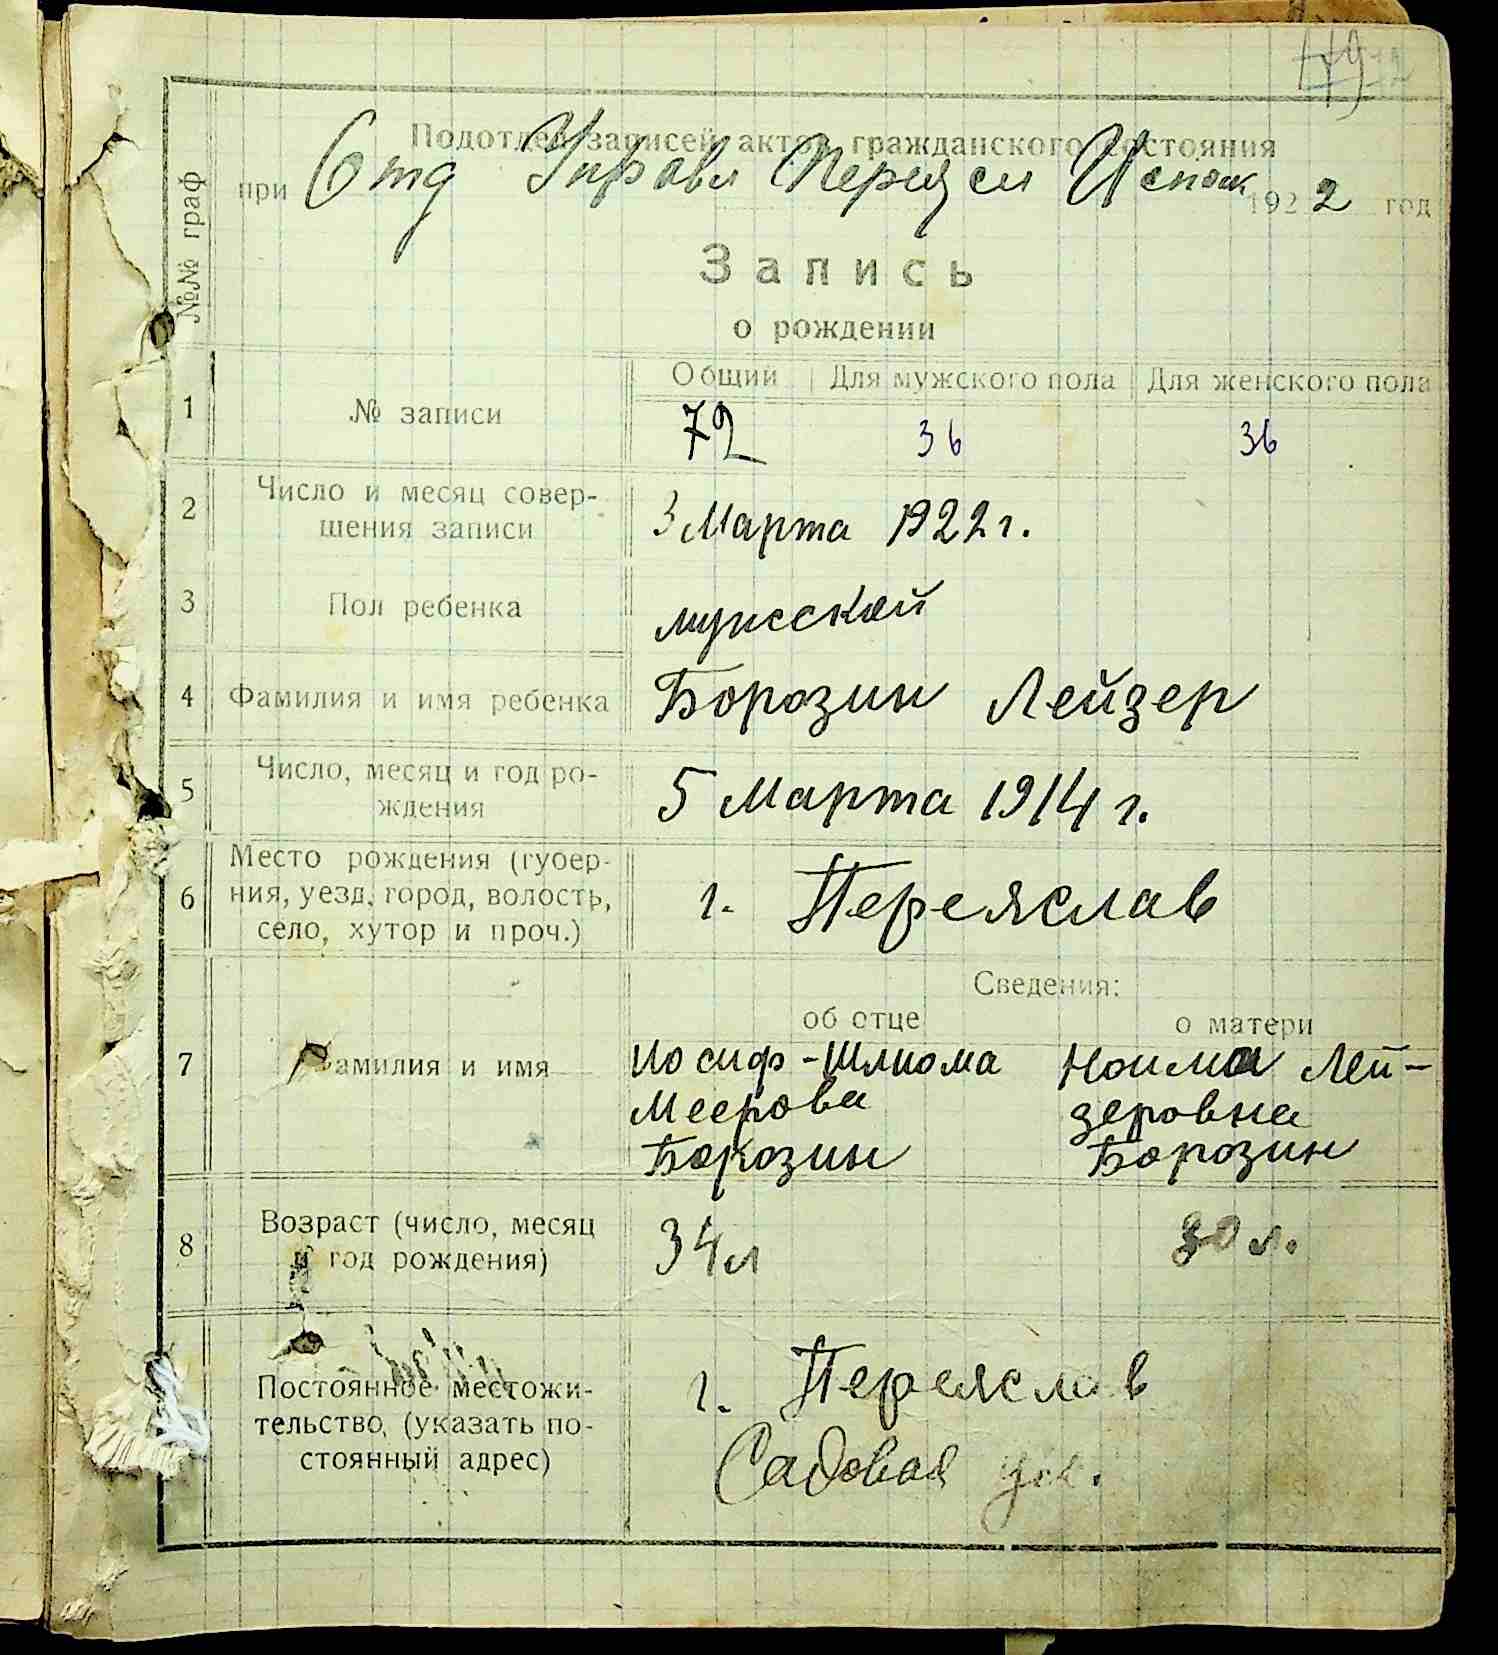 Подотдел записей актов гражданского состояния
при Отд Управл Переясл Исполк 1922 год
Запись
о рождении
№№ граф
Общий Для мужского пола Для женского пола
1 № записи 72 36 36
2 Число и месяц совер-
шения записи 3 Марта 1922 г.
3 Пол ребенка мужской
4 Фамилия и имя ребенка Борозин Лейзер
5 Число, месяц и год ро-
ждения 5 Марта 1914 г.
6 Место рождения (губер-
ния, уезд, город, волость, г. Переяслав
село, хутор и проч.)
Сведения:
об отце о матери
7 Фамилия и имя Иосиф-Шлиома Ноима Лей-
Меерова зеровна
Борозин Борозин
8 Возраст (число, месяц
и год рождения) 34 л 30 л.
Постоянное местожи-
тельство, (указать по-
стоянный адрес)
г. Переяслав
Садовая ул.